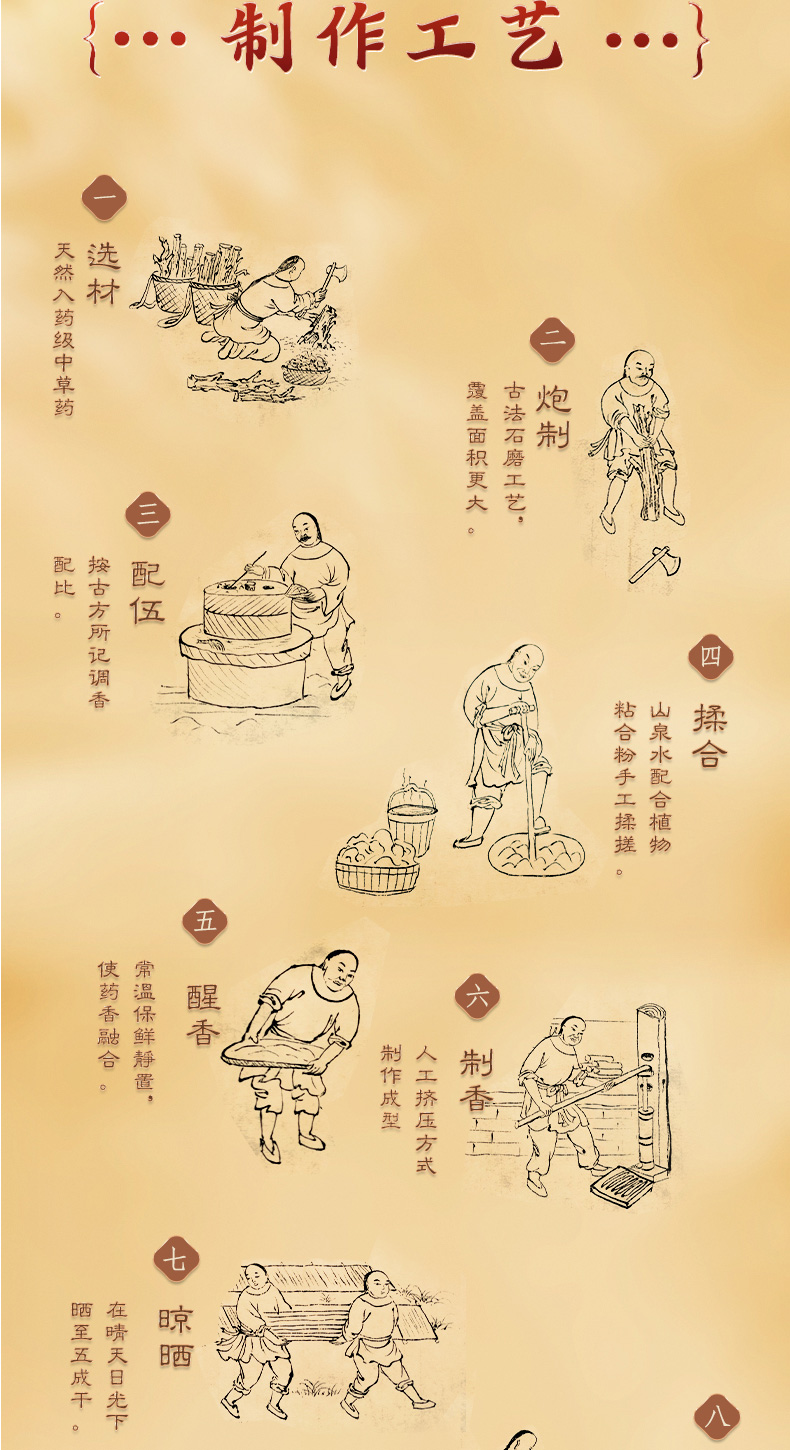 {••• 制作工艺 •••}
一
选材
天然入药级中草药
二
炮制
古法石磨工艺，
覆盖面积更大。
三
配伍
按古方所记调香
配比。
四
揉合
山泉水配合植物
粘合粉手工揉搓。
五
醒香
常温保鲜静置，
使药香融合。
六
制香
人工挤压方式
制作成型
七
晾晒
在晴天日光下
晒至五成干。
八